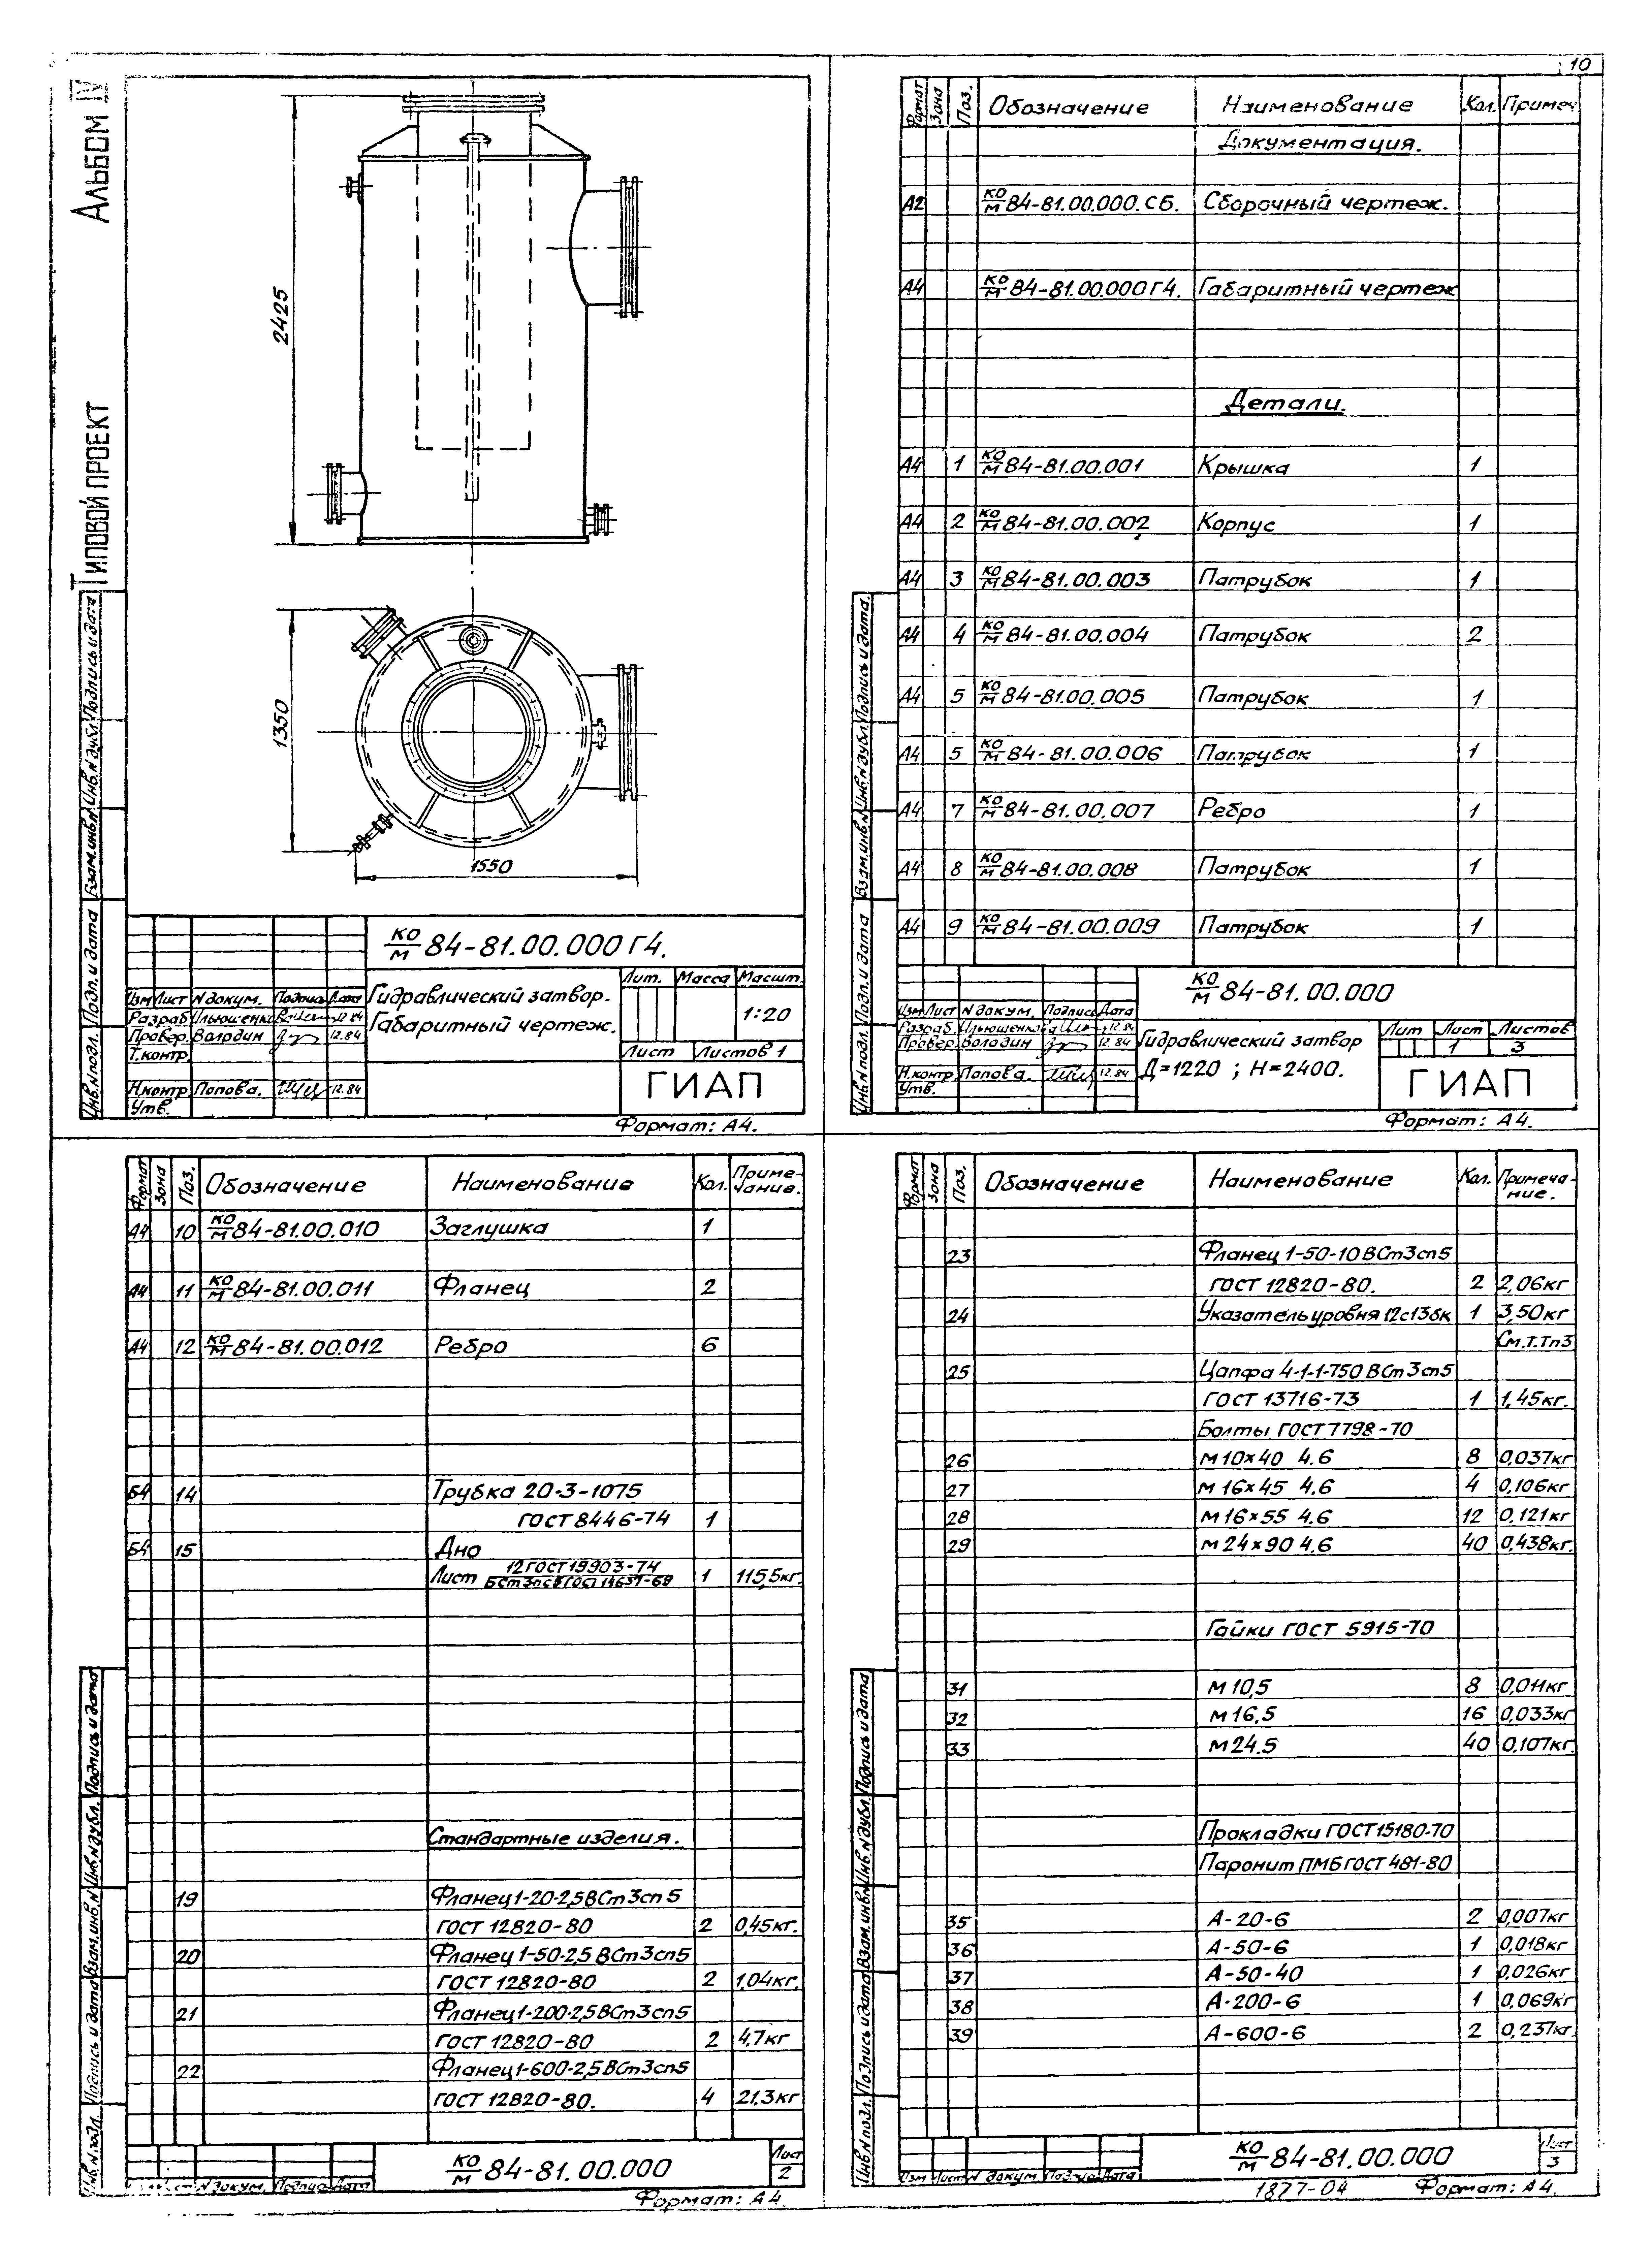 10
Альбом IV
Типовой проект
2425
1350
1550
КО/М 84-81.00.000 Г4.
Гидравлический затвор.
Габаритный чертеж.
Лит. Масса Масшт.
1:20
Лист Листов 1
ГИАП
Изм Лист N докум. Подпись Дата
Разраб Ильюшенко 12.84
Провер. Володин 12.84
Т.контр.
Н.контр Попова. 12.84
Утв.
Формат: А4.
Инв.N подл. Подп. и дата Взам.инв.N Инв.N дубл. Подпись и дата
Формат Зона Поз. Обозначение Наименование Кол. Примеч
Документация.
А2 КО/М 84-81.00.000.СБ. Сборочный чертеж.
А4 КО/М 84-81.00.000Г4. Габаритный чертеж
Детали.
А4 1 КО/М 84-81.00.001 Крышка 1
А4 2 КО/М 84-81.00.002 Корпус 1
А4 3 КО/М 84-81.00.003 Патрубок 1
А4 4 КО/М 84-81.00.004 Патрубок 2
А4 5 КО/М 84-81.00.005 Патрубок 1
А4 5 КО/М 84-81.00.006 Патрубок 1
А4 7 КО/М 84-81.00.007 Ребро 1
А4 8 КО/М 84-81.00.008 Патрубок 1
А4 9 КО/М 84-81.00.009 Патрубок 1
КО/М 84-81.00.000
Изм Лист N докум. Подпись Дата
Разраб. Ильюшенко 12.84
Провер. Володин 12.84
Н.контр. Попова. 12.84
Утв.
Гидравлический затвор
Д=1220 ; Н=2400.
Лит Лист Листов
1 3
ГИАП
Формат: А4.
Инв.N подл. Подп. и дата Взам.инв.N Инв.N дубл. Подпись и дата.
Формат Зона Поз. Обозначение Наименование Кол. Приме-
чание.
А4 10 КО/М 84-81.00.010 Заглушка 1
А4 11 КО/М 84-81.00.011 Фланец 2
А4 12 КО/М 84-81.00.012 Ребро 6
Б4 14 Трубка 20-3-1075
ГОСТ 8446-74 1
Б4 15 Дно
Лист 12 ГОСТ 19903-74 1 115,5кг.
Стандартные изделия.
19 Фланец 1-20-2,5 ВСт3сп5
ГОСТ 12820-80 2 0,45кг.
20 Фланец 1-50-2,5 ВСт3сп5
ГОСТ 12820-80 2 1,04кг.
21 Фланец 1-200-2,5 ВСт3сп5
ГОСТ 12820-80 2 4,7кг
22 Фланец 1-600-2,5 ВСт3сп5
ГОСТ 12820-80. 4 21,3кг
КО/М 84-81.00.000
Лист
2
N докум. Подпись Дата
Формат: А4.
Инв.N подл. Подпись и дата Взам.инв.N Инв.N дубл. Подпись и дата
Формат Зона Поз. Обозначение Наименование Кол. Примеча-
ние.
23 Фланец 1-50-10 ВСт3сп5
ГОСТ 12820-80. 2 2,06кг
24 Указатель уровня 12с13бк 1 3,50кг
См.т.Тп3
25 Цапфа 4-1-1-750 ВСт3сп5
ГОСТ 13716-73 1 1,45кг.
Болты ГОСТ 7798-70
26 М10×40 4.6 8 0,037кг
27 М16×45 4.6 4 0,106кг
28 М16×55 4.6 12 0,121кг
29 М24×90 4.6 40 0,438кг.
Гайки ГОСТ 5915-70
31 М10,5 8 0,011кг
32 М16,5 16 0,033кг
33 М24.5 40 0,107кг.
Прокладки ГОСТ 15180-70
Паронит ПМБ ГОСТ 481-80
35 А-20-6 2 0,007кг
36 А-50-6 1 0,018кг
37 А-50-40 1 0,026кг
38 А-200-6 1 0,069кг
39 А-600-6 2 0,237кг.
КО/М 84-81.00.000
Лист
3
Изм Лист N докум Подпись Дата
1877-04 Формат: А4.
Инв.N подл. Подпись и дата Взам.инв.N Инв.N дубл. Подпись и дата